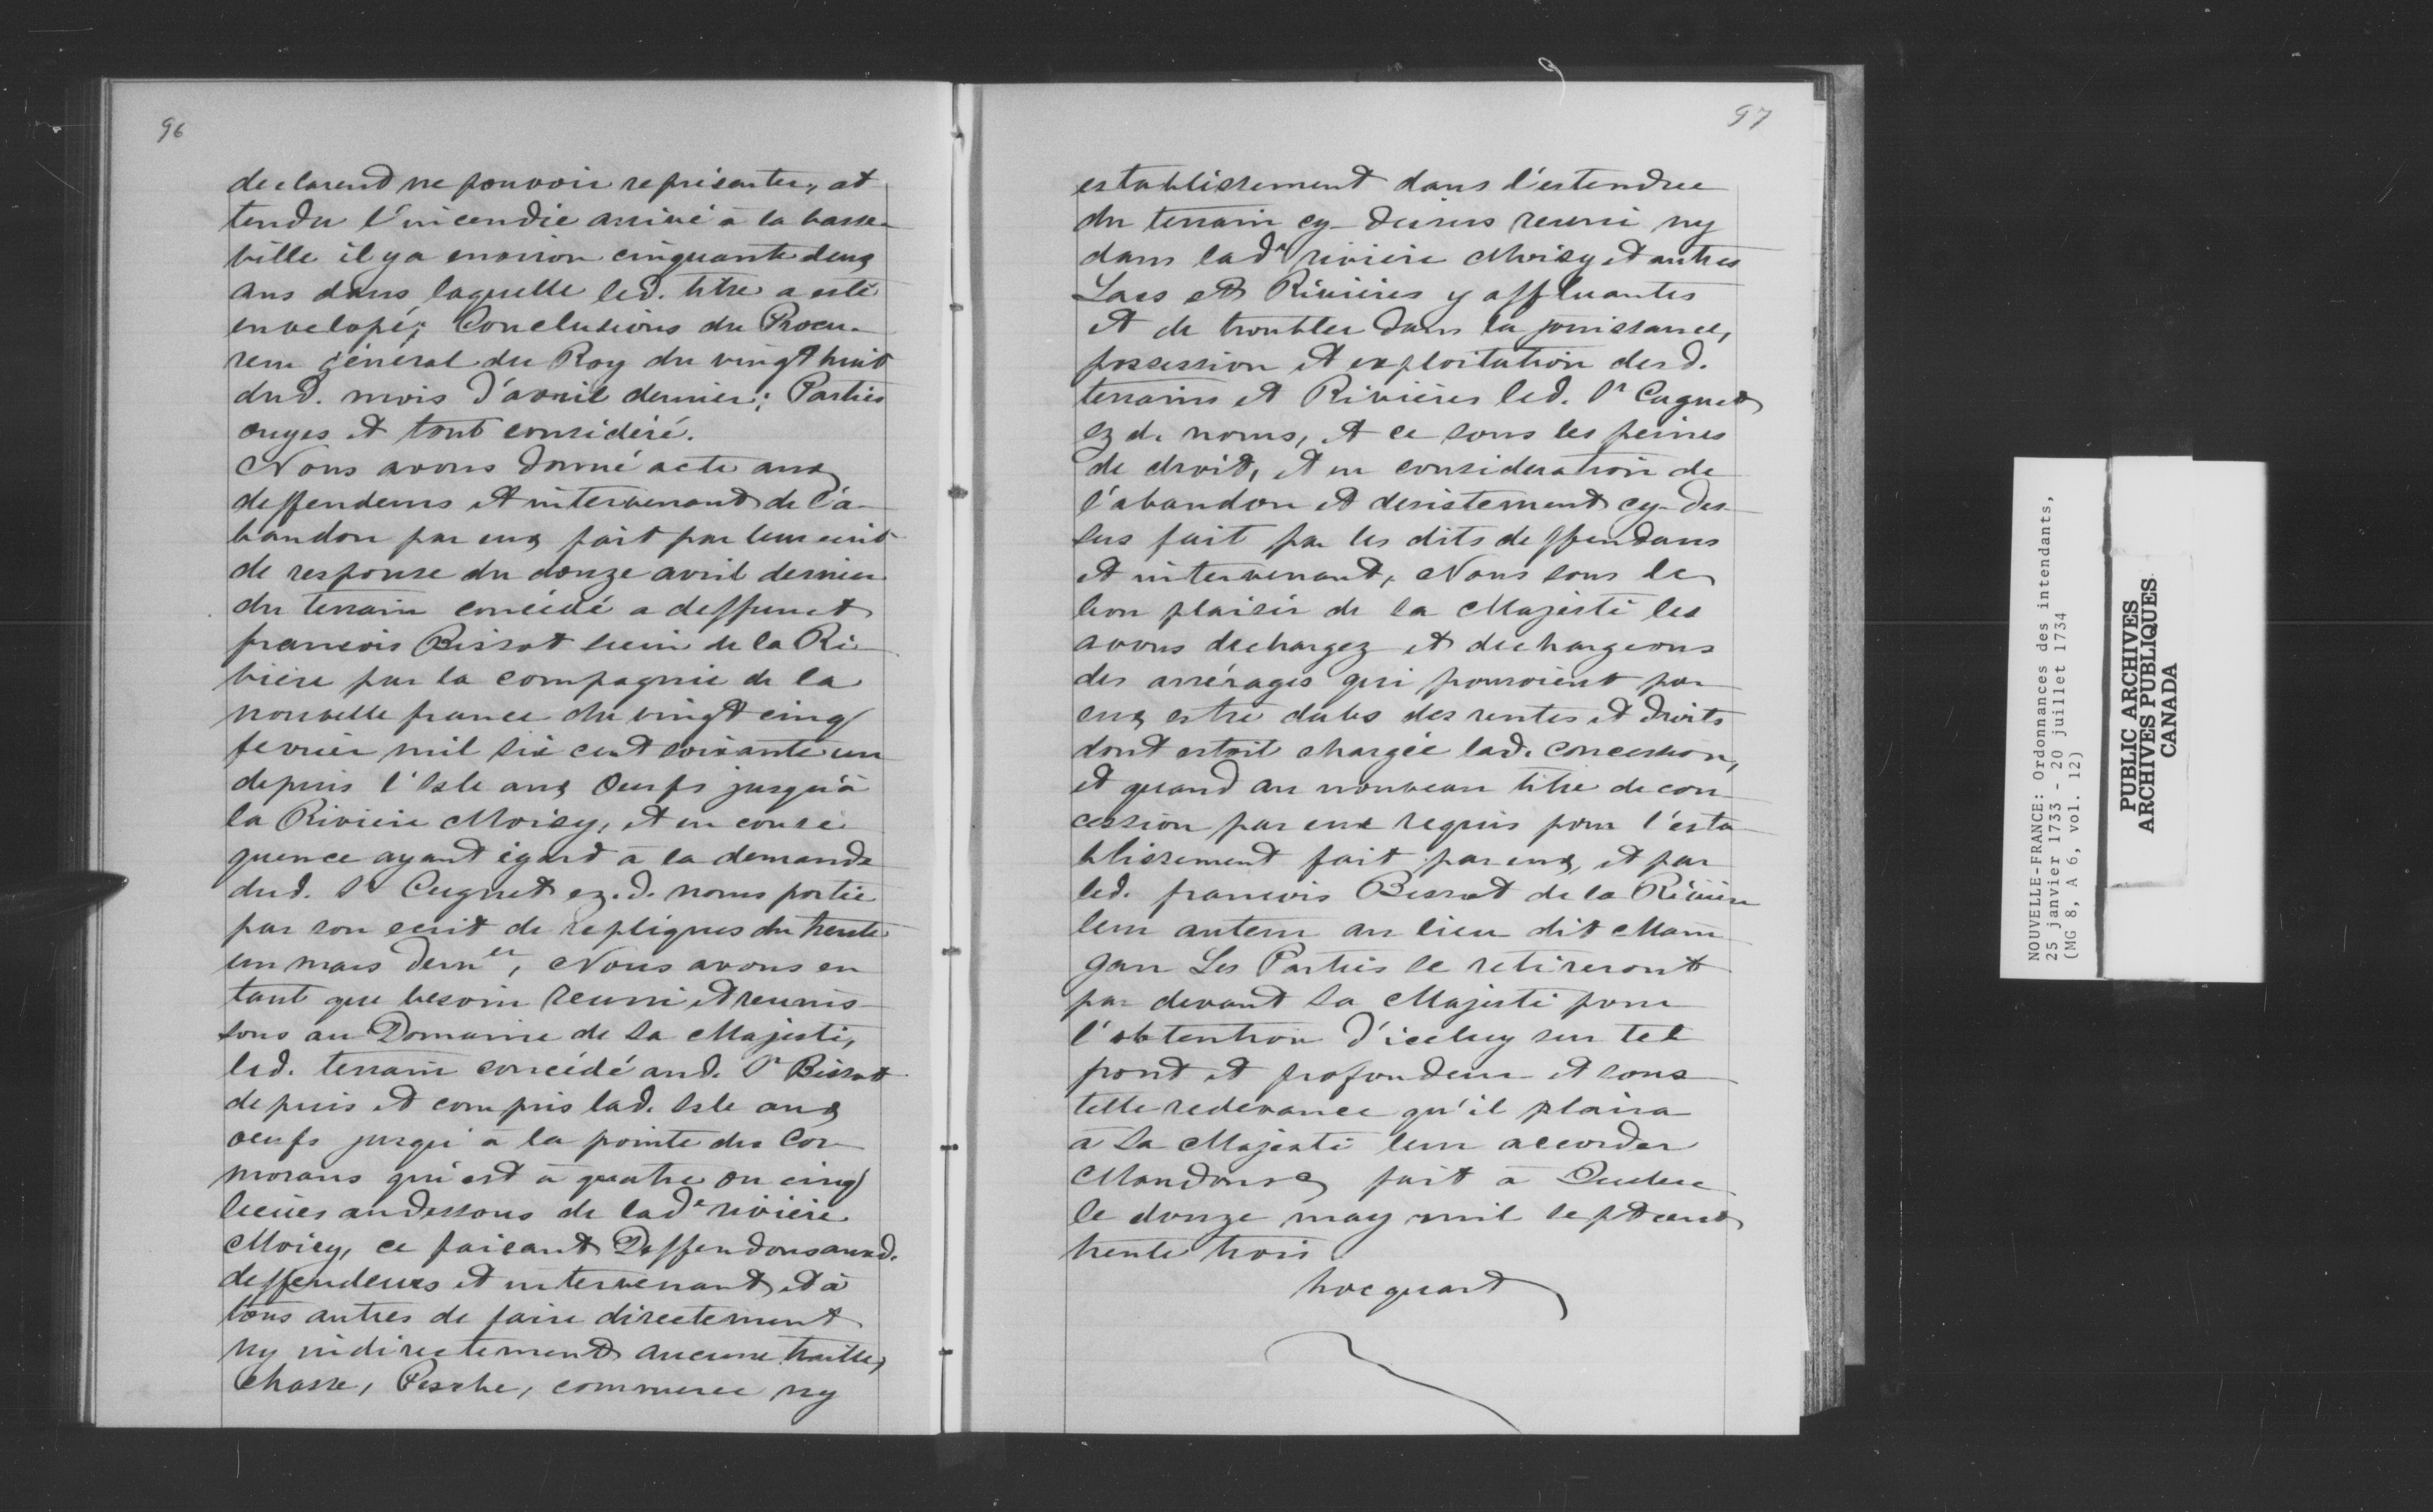 96
declarend ne pouvoir representer, at
tendu l'incendie arrivé à la basse
ville il y a environ cinquante deux
ans dans laquelle led. titre a esté
envelopé; Conclusions du Procu-
reur général du Roy du vingt huit
dud. mois d'avril dernier; Parties
ouyes et tout considéré.
Nous avons donné acte aux
deffendeurs et intervenant de l'a-
bandon par eux fait par leur ecrit
de response du douze avril dernier
du terrain concédé a deffunct
francois Bissot sieur de la Ri-
viere par la compagnie de la
nouvelle france du vingt cinq
fevrier mil six cent soixante un
depuis l'Isle aux Oeufs jusqu'à
la Riviere Moisy, et en conse
quence ayant égard à la demande
dud. Sr Cugnet ez. d. noms portée
par son ecrit de repliques du trente
un mars dern.er, Nous avons en
tant que besoin reuni et reunis-
sons au Domaine de Sa Majesté,
led. terrain concédé aud. Sr Bissot
depuis et compris lad. Isle aux
oeufs jusqu'à la pointe des Cor-
morans qui est à quatre ou cinq
lieües au dessous de lade riviere
Moisy, ce faisant Deffendons auxd.
deffendeurs et intervenant, et à
tous autres de faire directement
ny indirectement aucune traitte,
Chasse, Pesche, commerce ny
97
establissement dans l'estendue
du terrain cy-dessus reuni ny
dans lade riviere Moisy et autres
Lacs et Rivières y affluantes
et de troubler dans la jouissance,
possession et exploitation desd.
terrains et Rivières led. Sr Cugnet
ez d. noms, et ce sous les peines
de droit, et en consideration de
l'abandon et desistement cy-des-
sus fait par les dits deffendans
et intervenant, Nous sous le
bon plaisir de sa Majesté les
avons dechargez et dechargeons
des arrérages qui pouroient par
eux estre dubs des rentes et droits
dont estoit chargée lad. concession,
et quand au nouveau titre de con-
cession par eux requis pour l'esta-
blissement fait par eux, et par
led. francois Bissot de la Rivière
leur auteur au lieu dit Main
gan Les Parties se retireront
par devant Sa Majesté pour
l'obtention d'iceluy sur tel
front et profondeur et sous
telle redevance qu'il plaira
à Sa Majesté leur accorder
Mandons & fait à Quebec
le douze may mil sept cent
trente trois.
hocquart
NOUVELLE-FRANCE: Ordonnances des intendants,
25 janvier 1733 - 20 juillet 1734
(MG 8, A 6, vol. 12)
PUBLIC ARCHIVES
ARCHIVES PUBLIQUES
CANADA